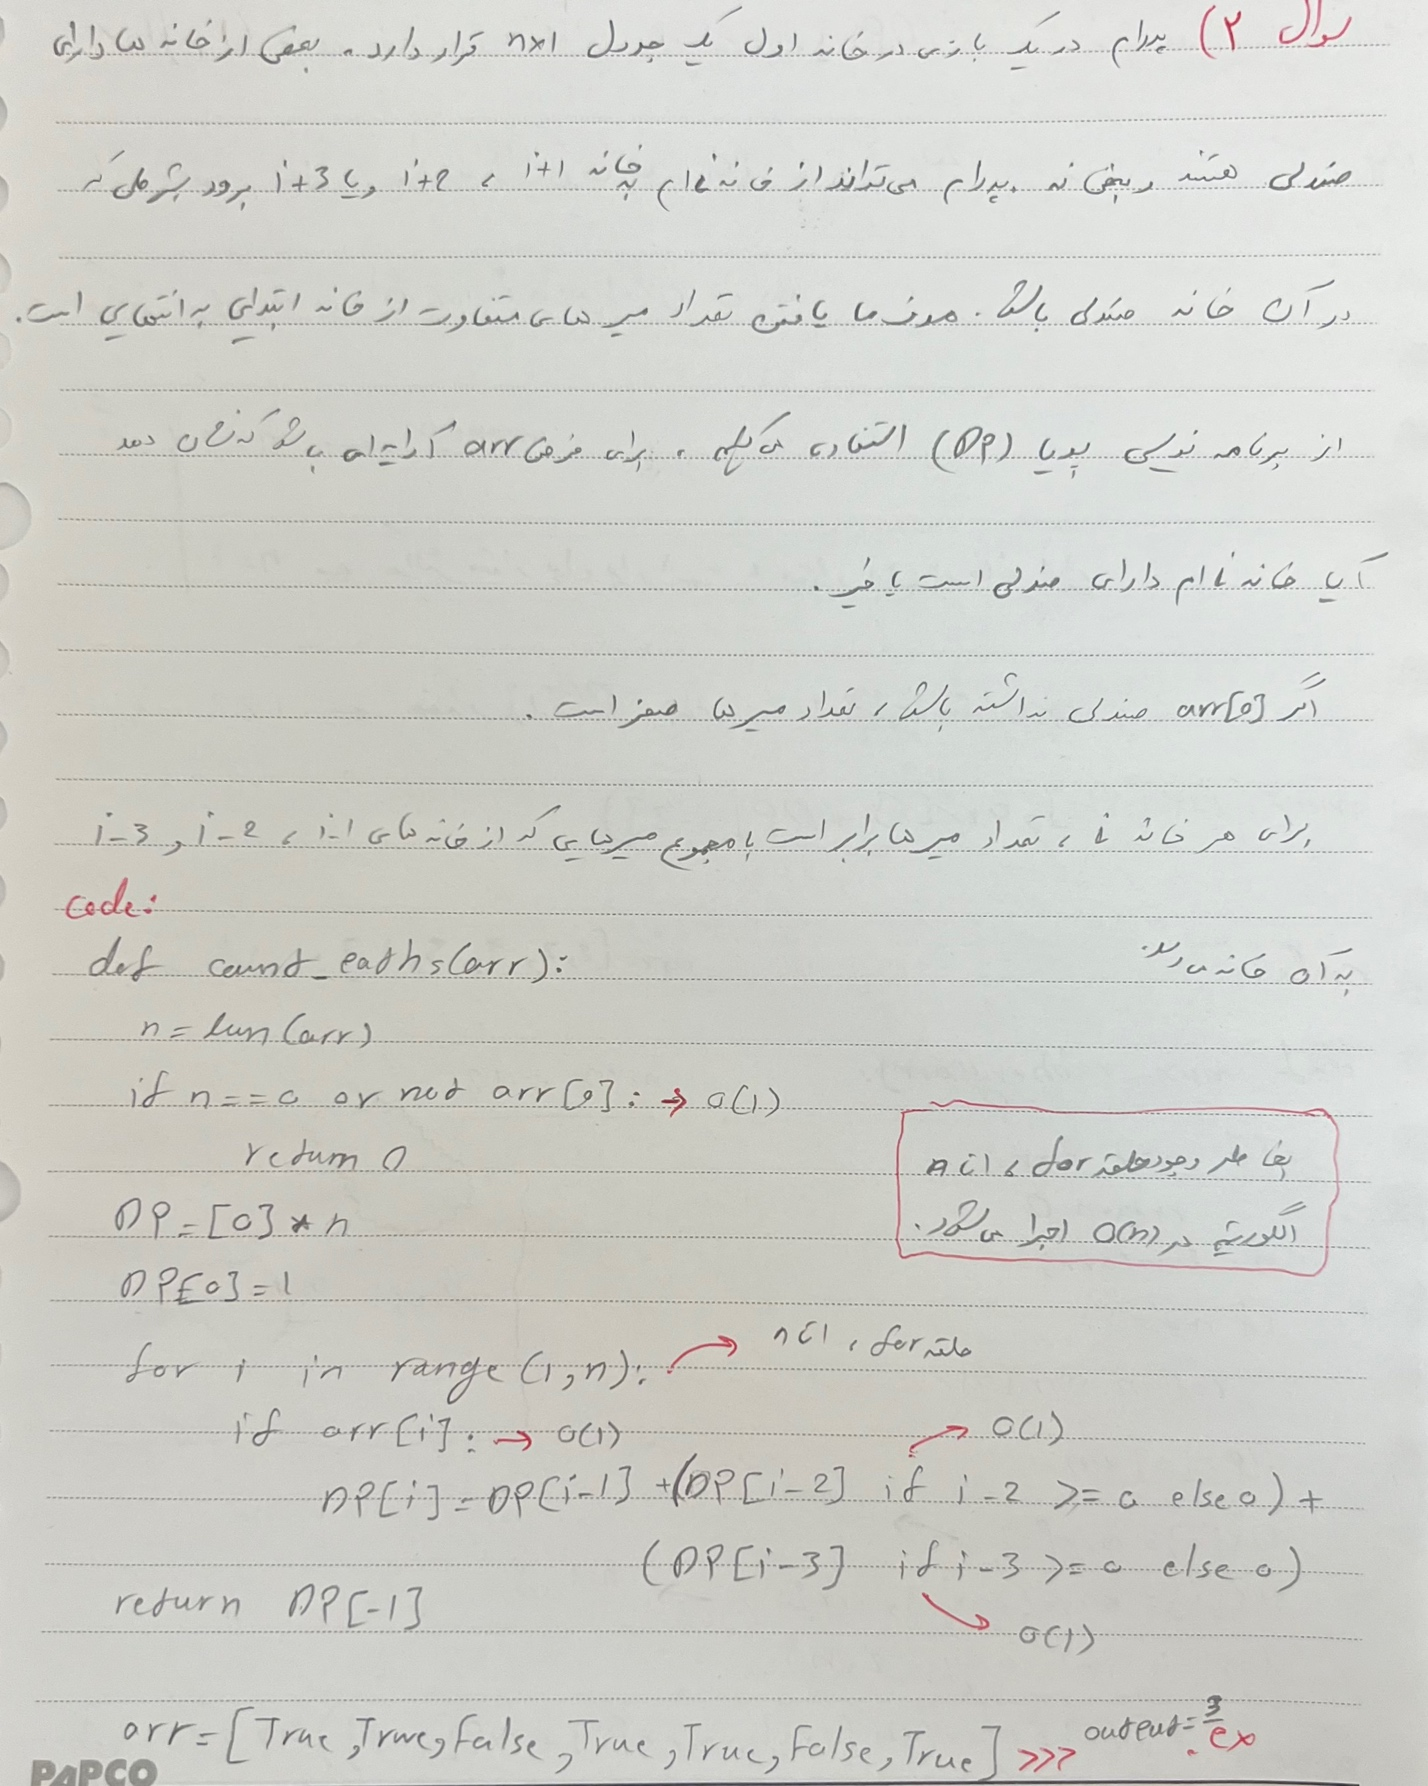 سوال ۲) پدرام در یک بازی در خانه اول یک جدول n×1 قرار دارد. بعضی از خانه ها دارای
صندلی هستند و بعضی نه. پدرام می‌تواند از خانه i ام به خانه i+1 ، i+2 و یا i+3 برود بشرطی که
در آن خانه صندلی باشد. هدف ما یافتن تعداد مسیر های متفاوت از خانه ابتدایی به انتهایی است.
از برنامه نویسی پویا (DP) استفاده می‌کنیم ، برای فرض arr آرایه‌ای باشد که نشان دهد
آیا خانه i ام دارای صندلی است یا خیر.
اگر arr[0] صندلی نداشته باشد، تعداد مسیرها صفر است.
برای هر خانه i ، تعداد مسیرها برابر است با مجموع مسیرهایی که از خانه های i-1 ، i-2 و i-3
به آن خانه می‌رسد.
code:
def count_paths(arr):
n = len(arr)
if n == 0 or not arr[0]: → O(1)
return 0
DP = [0] * n
DP[0] = 1
بخاطر وجود حلقه for ، 1 تا n
الگوریتم در O(n) اجرا می‌شود.
for i in range(1,n): → حلقه for ، 1 تا n
if arr[i]: → O(1)
→ O(1)
DP[i] = DP[i-1] + (DP[i-2] if i-2 >= 0 else 0) +
(DP[i-3] if i-3 >= 0 else 0)
→ O(1)
return DP[-1]
arr = [True, True, False, True, True, False, True] >>> output = 3
ex
PAPCO